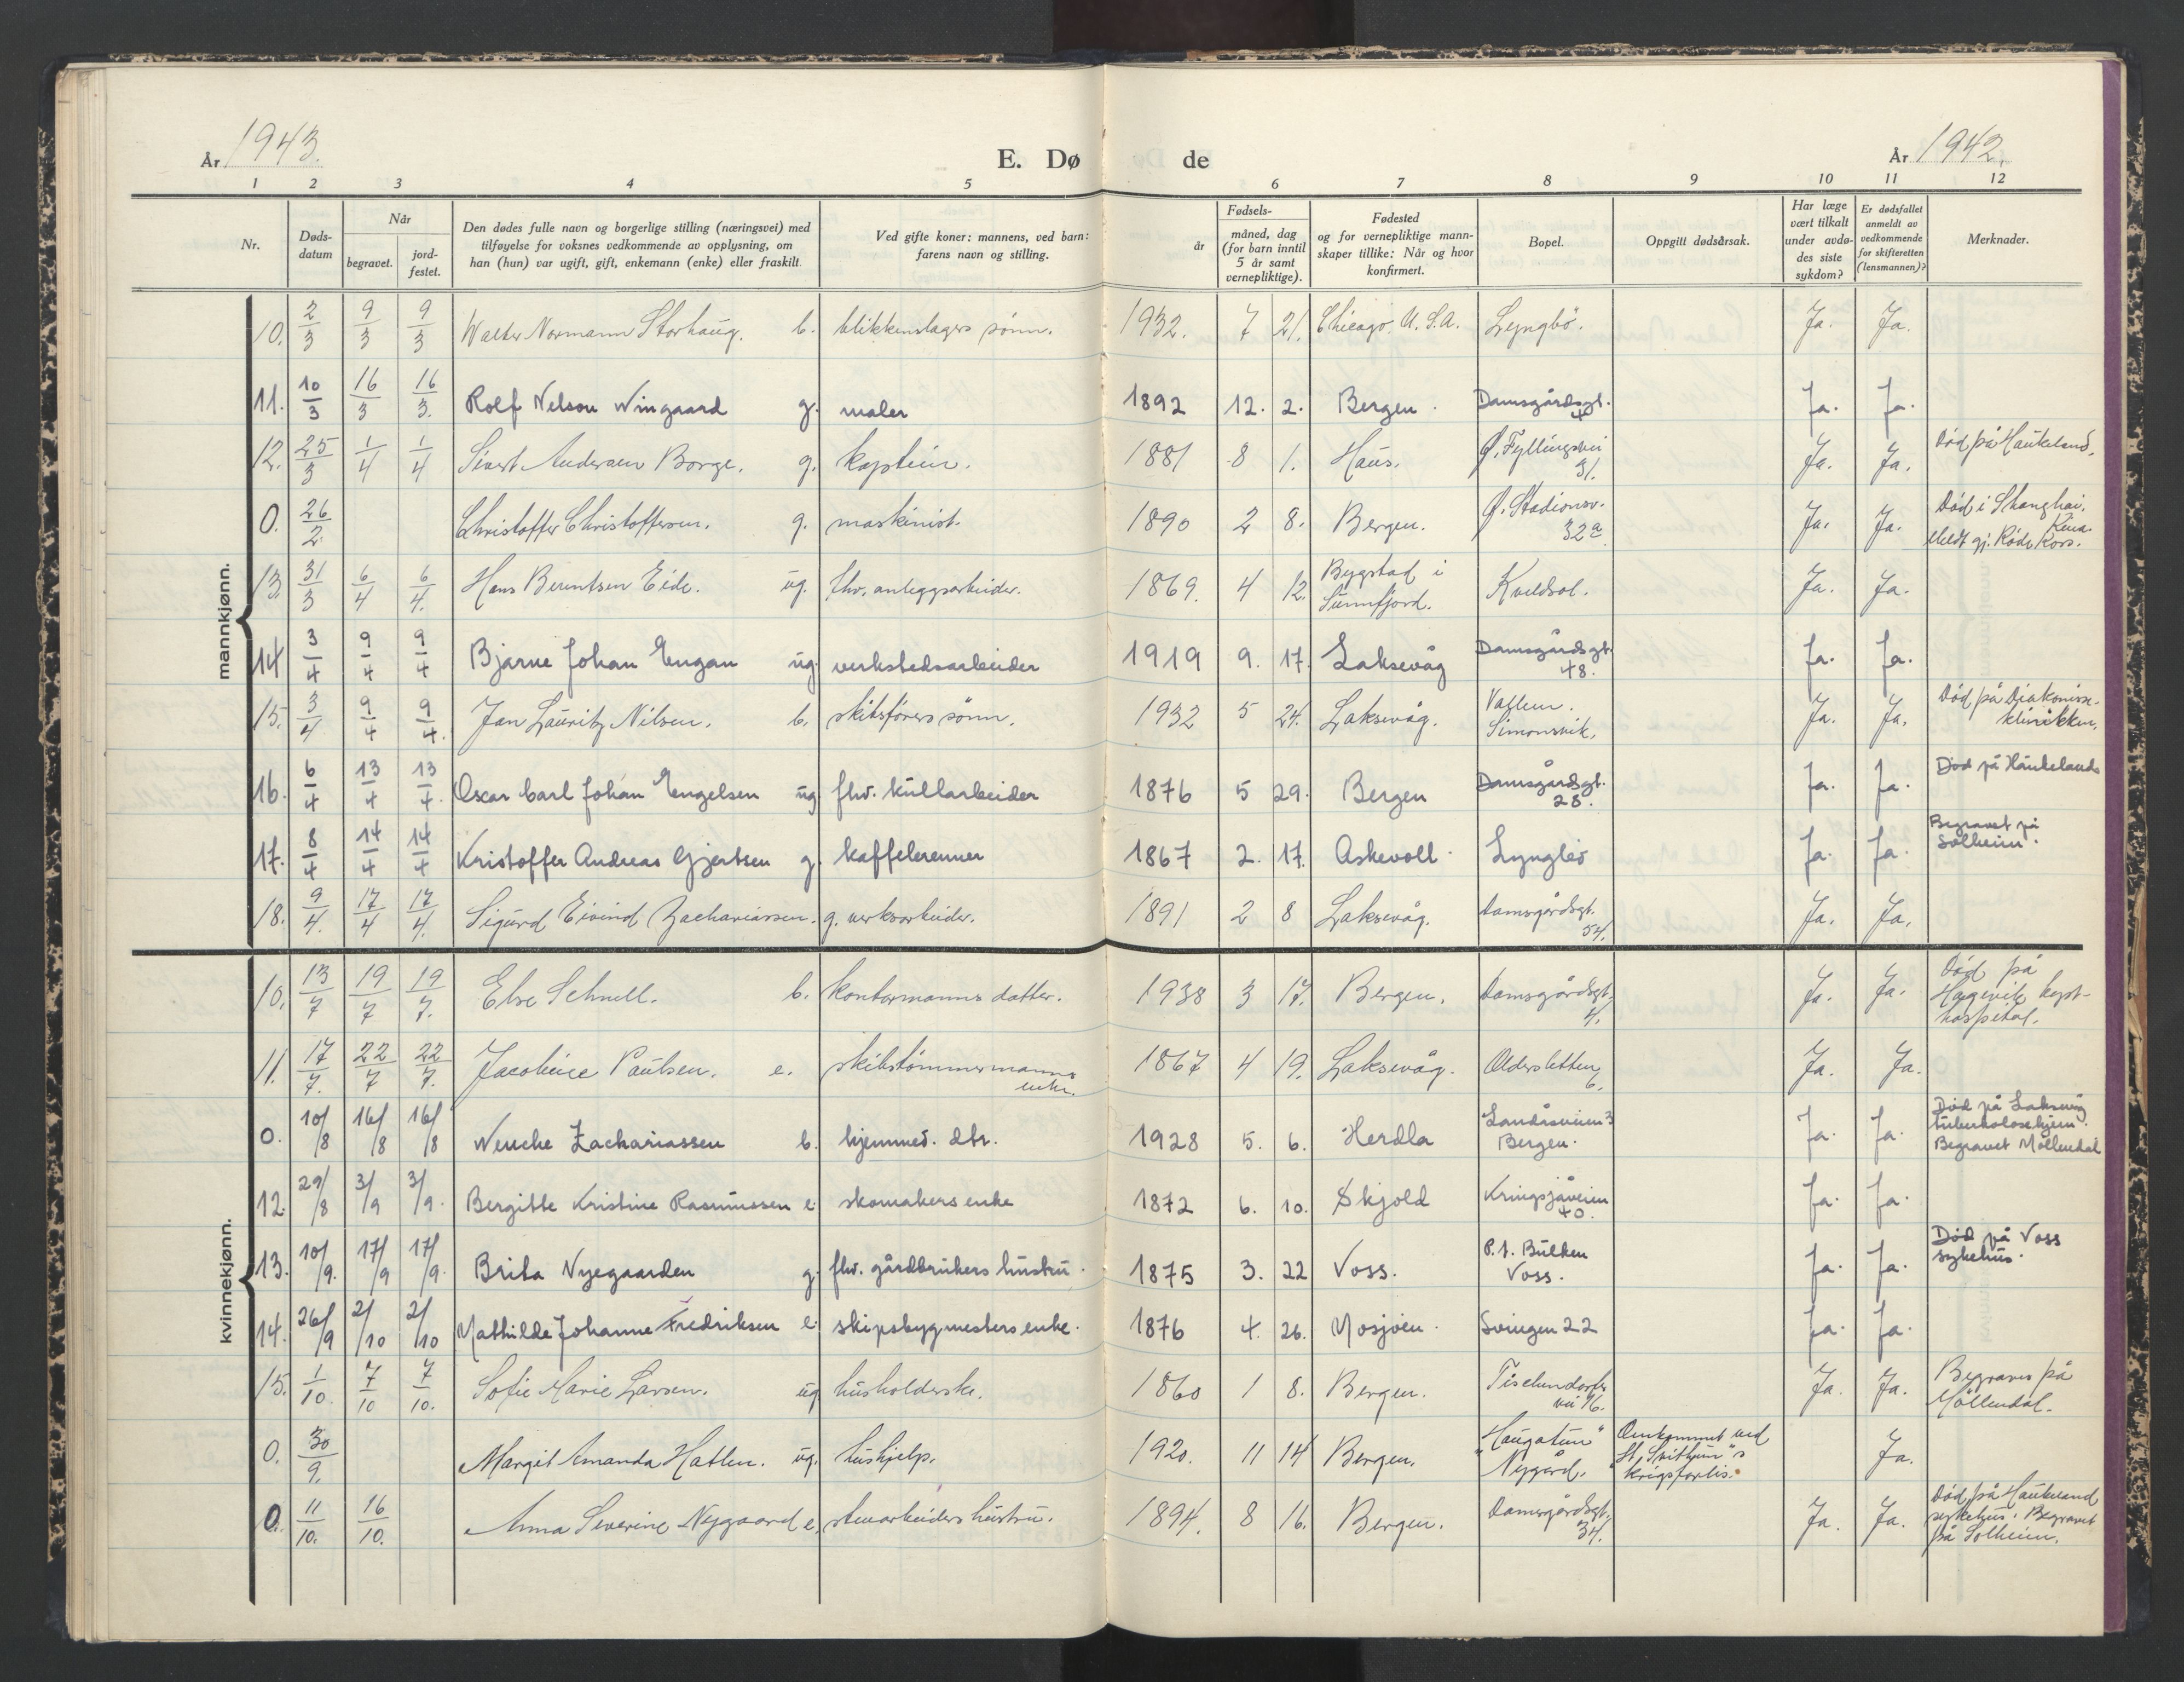 År 1943.
E. Dø de
År 1942.
1 2 3 4 5 6 7 8 9 10 11 12
Nr.
Døds-
datum
Når
begravet.
jord-
festet.
Den dødes fulle navn og borgerlige stilling (næringsvei) med
tilføyelse for voksnes vedkommende av opplysning, om
han (hun) var ugift, gift, enkemann (enke) eller fraskilt.
Ved gifte koner: mannens, ved barn:
farens navn og stilling.
Fødsels-
år
måned, dag
(for barn inntil
5 år samt
vernepliktige).
Fødested
og for vernepliktige mann-
skaper tillike: Når og hvor
konfirmert.
Bopel.
Oppgitt dødsårsak.
Har læge
vært tilkalt
under avdø-
des siste
sykdom?
Er dødsfallet
anmeldt av
vedkommende
for skifteretten
(lensmannen)?
Merknader.
mannkjønn.
10. 2/3 9/3 9/3 Walter Normann Storhaug. b. blikkenslagers sønn. 1932. 7 21. Chicago. U.S.A. Lyngbö. Ja. Ja.
11. 10/3 16/3 16/3. Rolf Nelson Wingaard g. maler 1892 12. 2. Bergen. Damsgårdsgt. Ja. Ja.
12. 25/3 1/4 1/4 Sivert Andersen Borge. g. kaptein. 1881 8 1. Haus. Ø. Fyllingsvei
31. Ja. Ja. Död på Haukeland.
0. 26/2. Christoffer Christoffersen. g. maskinist. 1890 2 8. Bergen. Ø. Stadionsv.
32a. Ja. Ja. Död i Shanghai,
Kina.
Meldt gj. Röde Kors.
13 31/3 6/4 6/4. Hans Berentsen Eide. ug. fhv. anleggsarbeider. 1869. 4 12. Bygstad i
Sunnfjord. Kveldsol. Ja. Ja.
14 3/4 9/4 9/4 Bjarne Johan Engan ug. verkstedsarbeider 1919 9. 17. Laksevåg Damsgårdsgt.
48. Ja. Ja.
15. 3/4 9/4 9/4. Jan Lauritz Nilsen. b. skibsförers sönn. 1932 5 24. Laksevåg. Vallen.
Simonsvik. Ja. Ja. Död på Diakonisse-
klinikken.
16. 6/4 13/4 13/4. Oscar Carl Johan Engelsen ug. fhv. kullarbeider 1876 5 29. Bergen Damsgårdsgt.
28. Ja. Ja. Död på Haukelands
17. 8/4 14/4 14/4 Kristoffer Andreas Gjertsen g. kaffebrenner 1867 2. 17. Askevoll. Lyngbö Ja. Ja. Begravet på
Solheim.
18. 9/4. 17/4 17/4. Sigurd Eivind Zachariassen. g. verksarbeider. 1891 2 8 Laksevåg. Damsgårdsgt.
54. Ja. Ja.
kvinnekjønn.
10. 13/7 19/7 19/7. Else Schnell. b. kontormanns datter. 1938 3 17. Bergen. Damsgårdsgt.
4. Ja. Ja. Död på
Hagevik kyst-
hospital.
11. 17/7. 22/7 22/7. Jacobine Paulsen. e. skibstömmermanns
enke. 1867 4 19. Laksevåg. Oldersletten
6. Ja. Ja.
0. 10/8 16/8 16/8 Wenche Zachariassen b. hjemmev. dtr. 1928 5. 6. Herdla Landåsveien 3
Bergen. Ja. Ja. Död på Laksevåg
tuberkulosehjem.
Begravet Möllendal
12. 29/8 3/9 3/9. Bergitte Kristine Rasmussen e. skomakers enke 1872 6. 10. Skjold Kringsjåveien
40. Ja. Ja.
13. 10/9. 17/9 17/9. Brita Nyegaarden g. fhv. gårdbrukers hustru. 1875 3. 22 Voss. P.t. Bulken
Voss. Ja. Ja. Död på Voss
sykehus.
14. 26/9 2/10 2/10 Mathilde Johanne Fredriksen e. skipsbygmesters enke. 1876 4. 26. Mosjöen. Svingen 22 Ja. Ja.
15. 1/10. 7/10 7/10. Sofie Marie Larsen. ug. husholderske. 1860 1 8. Bergen. Tischendorfs
vei 16. Ja. Ja. Begraves på
Möllendal.
0. 30/9. Margit Amanda Hatlen. ug. hushjelp. 1920. 11 14 Bergen. "Haugatun"
Nygård. Omkommet ved
"St. Svithun"s
krigsforlis. Ja.
0. 11/10. 16/10. Anna Severine Nygaard e. stuearbeiders hustru. 1894. 8 16. Bergen. Damsgårdsgt.
34. Ja. Ja. Död på Haukeland
sykehus. Begravet
på Solheim.